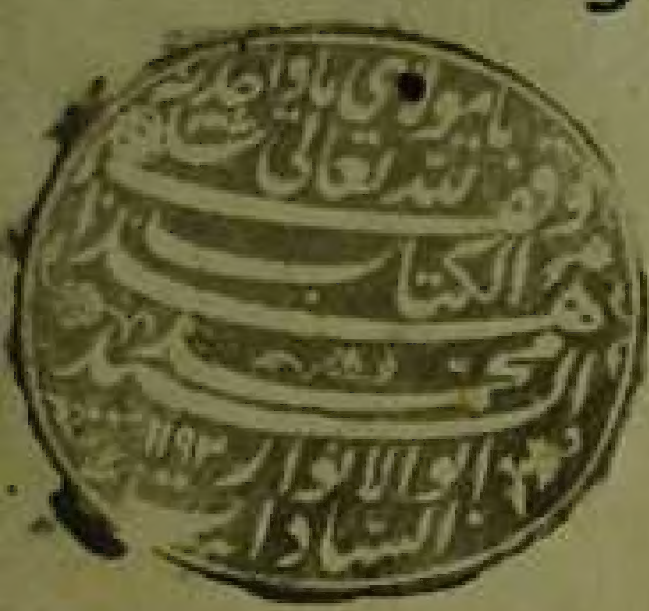 يامولاي ياواحد
وقف لله تعالى
هذا الكتاب
السيد محمد
ابو الانوار ١١٩٢
السادات